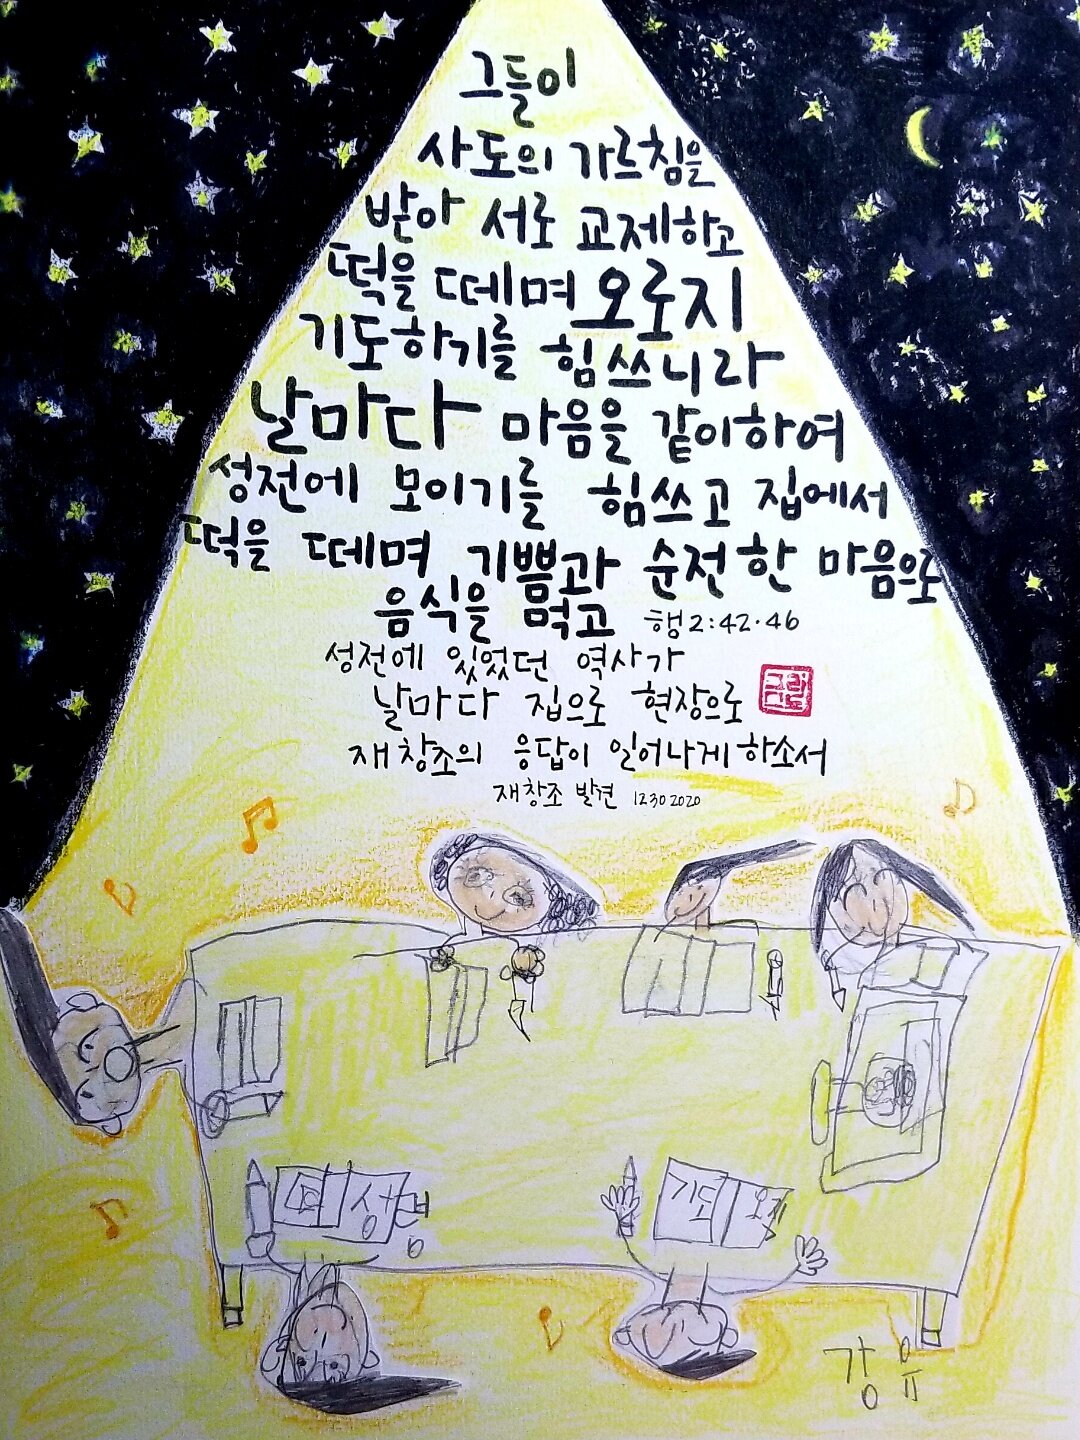 그들이
사도의 가르침을
받아 서로 교제하고
떡을 떼며 오로지
기도하기를 힘쓰니라
날마다 마음을 같이하여
성전에 모이기를 힘쓰고 집에서
떡을 떼며 기쁨과 순전한 마음으로
음식을 먹고 행2:42·46
성전에 있었던 역사가
날마다 집으로 현장으로
재창조의 응답이 일어나게 하소서
재창조 발견 12302020
기도
강유